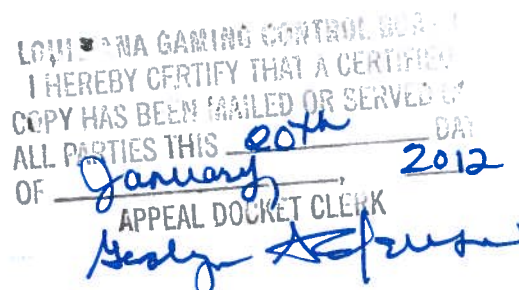 LOUISIANA GAMING CONTROL
I HEREBY CERTIFY THAT A CERTIFIED
COPY HAS BEEN MAILED OR SERVED
ALL PARTIES THIS 20th DAY
OF January, 2012
APPEAL DOCKET CLERK